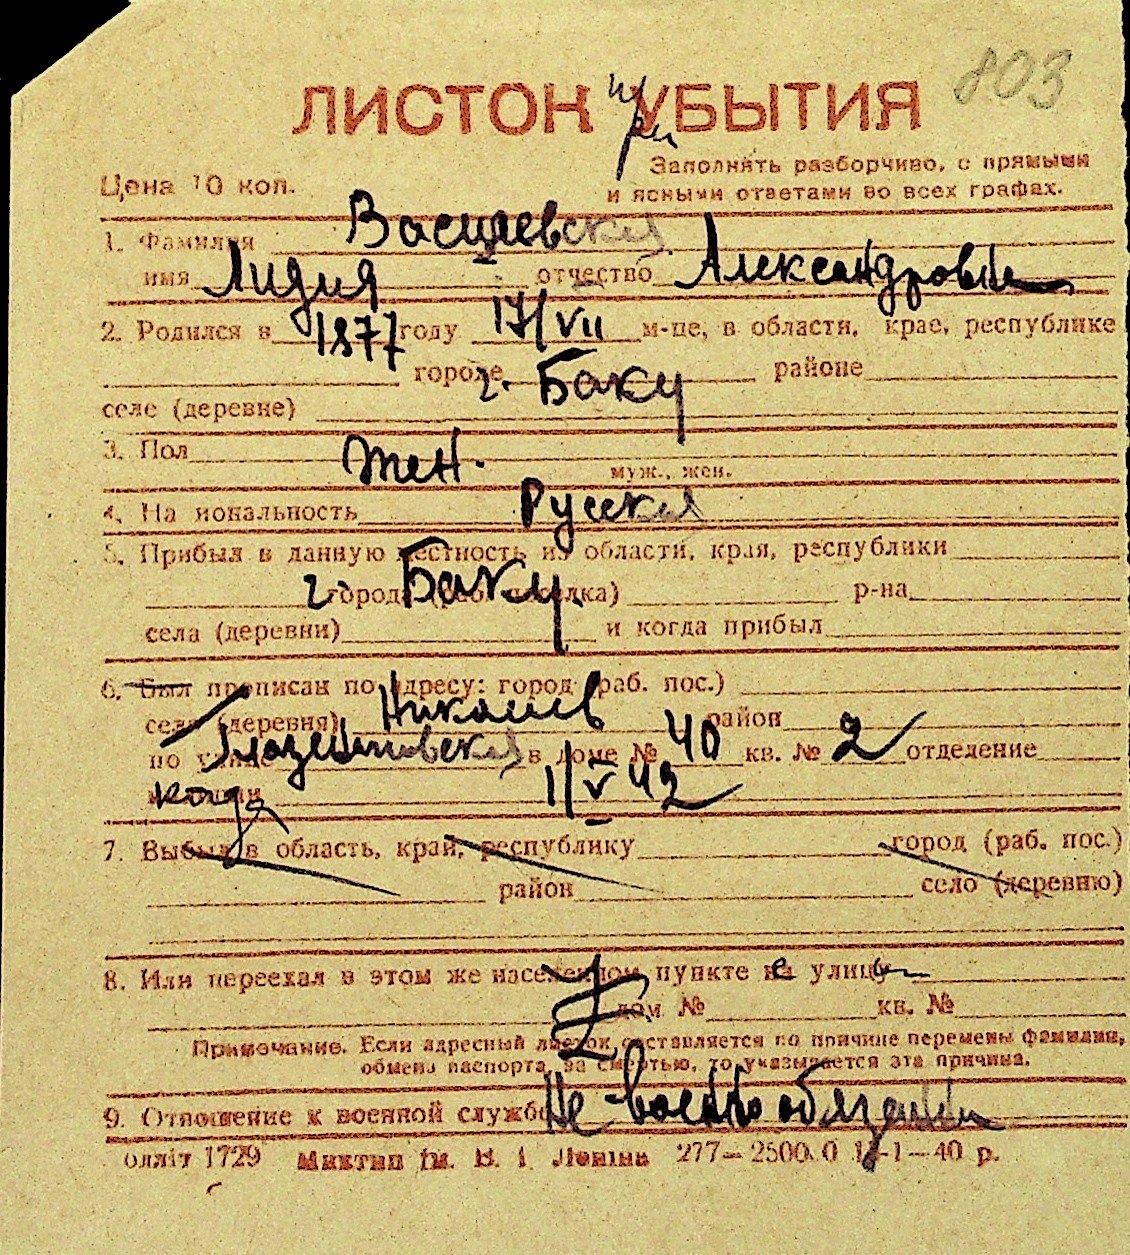 803
ЛИСТОК УБЫТИЯ
при
Заполнять разборчиво, с прямыми
Цена 10 коп.
и ясными ответами во всех графах.
1. Фамилия Василевская
имя Лидия отчество Александровн
2. Родился в 1877 году 17/VII м-це, в области, крае, республике
городе г. Баку районе
селе (деревне)
3. Пол жен.
муж., жен.
4. Национальность Русская
5. Прибыл в данную местность из области, края, республики
г. Баку города (раб. поселка) р-на
села (деревни) и когда прибыл
6. Был прописан по адресу: город (раб. пос.)
село (деревня) Николаев район
по улице в доме № 40 кв. № 2 отделение
когда 1/V 42
7. Выбыл в область, край, республику город (раб. пос.)
район село (деревню)
8. Или переехал в этом же населенном пункте на улицу
дом № кв. №
Примечание. Если адресный листок составляется по причине перемены фамилии,
обмена паспорта, за смертью, то указывается эта причина.
9. Отношение к военной службе Не-военнообязанн
олліт 1729 Миктип ім. В. І. Леніна 277—2500.0 1 -1—40 р.